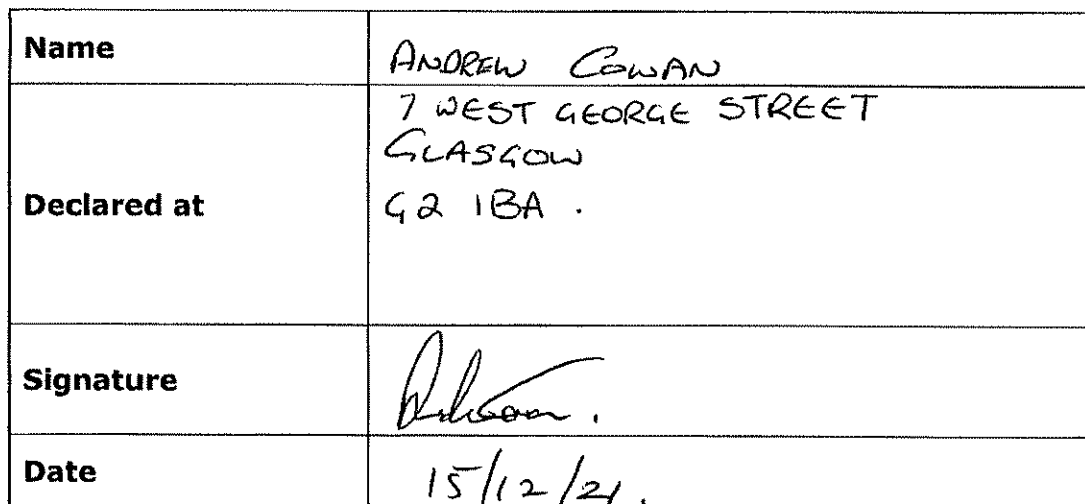 Name
ANDREW COWAN
Declared at
7 WEST GEORGE STREET
GLASGOW
G2 1BA .
Signature
Date
15/12/21.